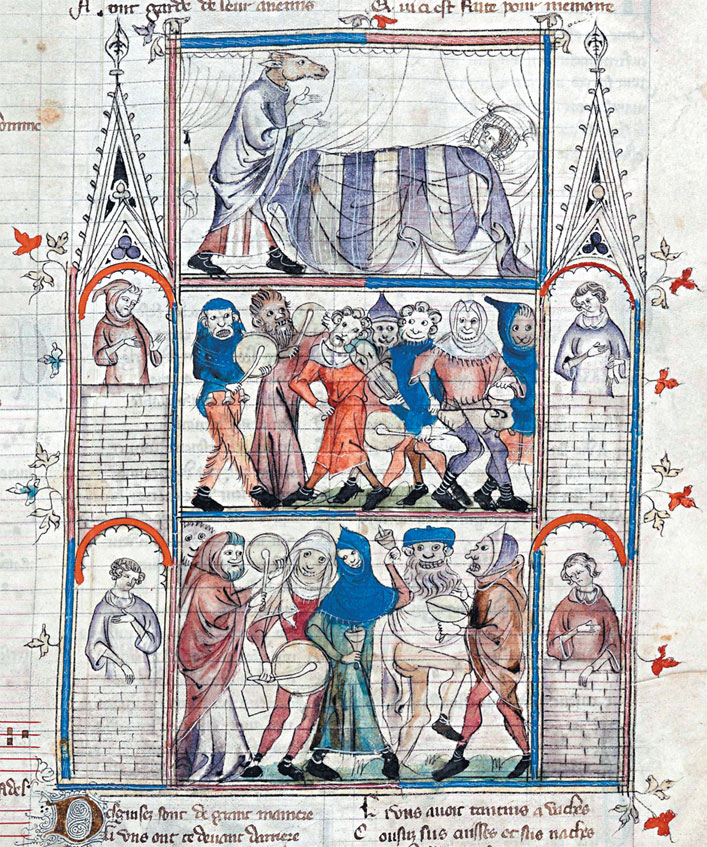 A ont garde de leur anemis
Qui ci est faite pour memoire
omme
Desguisez sont de grant maniere
Li vns ont ce deuant darriere
Li vns auoit tantins a vaches
Cousuz sus cuisses et sus naches